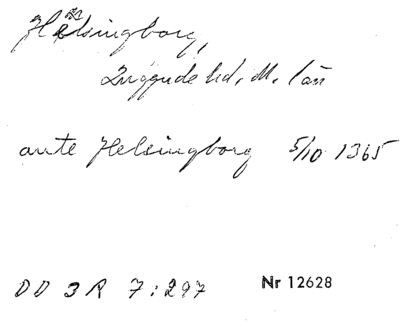 Helsingborg,
Luggude hd, M. län
ante Helsingborg 5/10 1365
DD 3 R 7:297 Nr 12628